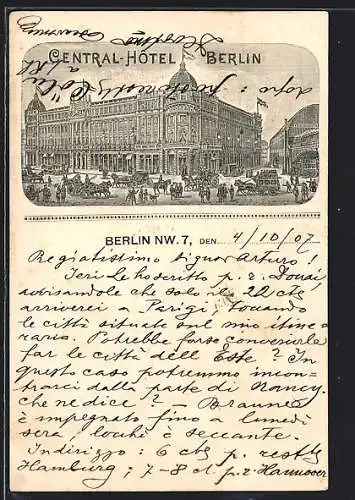 CENTRAL-HÔTEL BERLIN
BERLIN NW. 7, DEN 4/10/07
Pregiatissimo Signor Arturo!
Ieri le ho scritto p. r. Douai,
avvisandole che solo il 22 ct.
arriverei a Parigi, toccando
le città situate sul mio itine-
rario. Potrebbe forse convenirle
far le città dell'Este? In
questo caso potremmo incon-
trarci dalla parte di Nancy.
che ne dice? – Braunes
è impegnato fino a lunedì
sera, locchè è seccante.
Indirizzo: 6 ct. p. restte
Hamburg; 7-8 ct. p. r. Hannover
dopo: